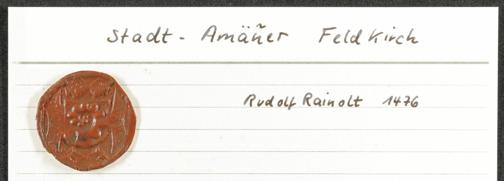 Stadt - Amäñer Feldkirch
Rudolf Rainolt 1476